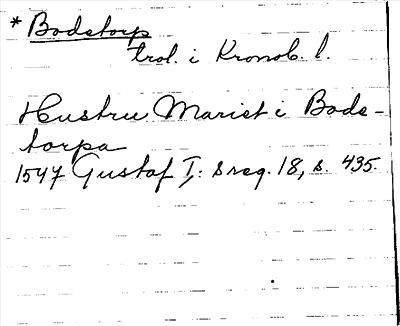 * Bodstorp
trol. i Kronob. l.
Hustru Marist i Bods-
torpa
1547 Gustaf I:s reg. 18, s. 435.